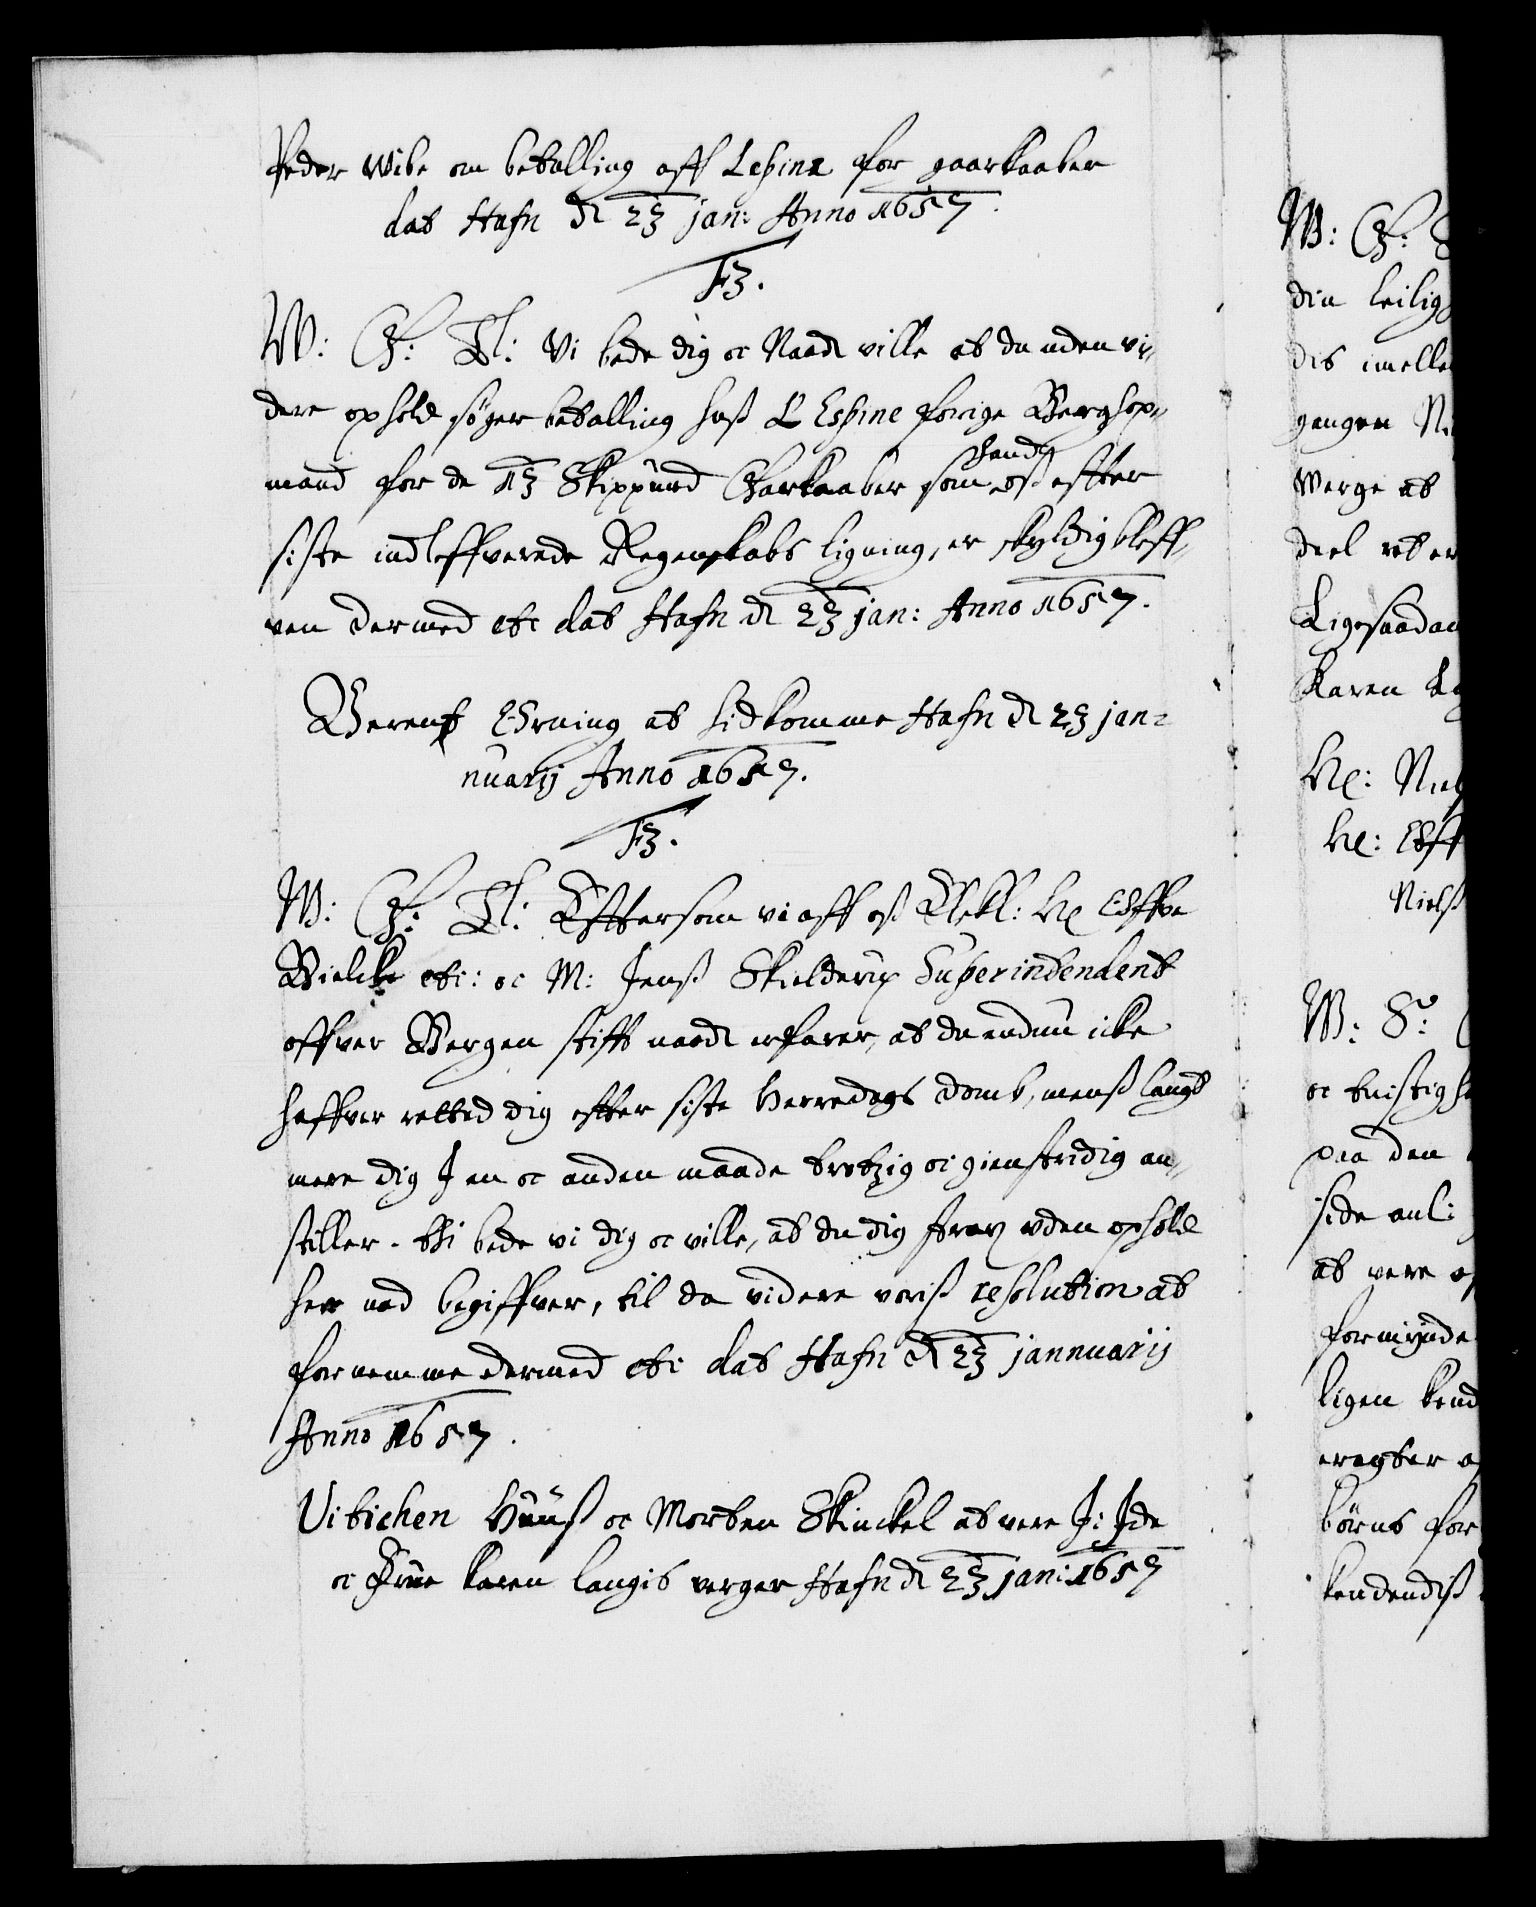 Peder Wibe om betalling aff Lespine for gaarkaaber
dat Hafn dl 23 jan: Anno 1657.
F3.
W: G: Tl: Vi bede dig oc Naadl ville at du uden vi-
dere ophold söger betalling hoß L'Espine forige Berghop-
mand for de 13 Skippund Garkaaber som hand oß effter
siste indleffverede Regenskabs ligning, er skyldig bleff-
ven dermed etc dat Hafn dl 23 jan: Anno 1657.
Berent Orning at hidkomme Hafn dl 23 jan-
nuarij Anno 1657.
F3.
W: G: Tl: Efftersom vi aff oß Elskl: He Offve
Bielcke etc: oc M: Jenß Skielderup Superindendent
offver Bergen stift naadl erfarer, at du endnu icke
haffver retted dig effter siste Herredags domb, menß langt
mere dig J en oc anden maade trotzig oc gienstridig an-
stiller. thi bede vi dig oc ville, at du dig strax uden ophold
her ned begiffver, til da videre voriß resolution at
fornemme dermed etc dat Hafn dl 23 jannuarij
Anno 1657.
Vitichen Hüüß oc Morten Skinckel at vere J: Ide
oc Frue Karen Langis verger Hafn dl 23 jan: 1657
W: G:
din leilig
dis imelle
gangen
Werge at
deel
Ligesaadan
Karen
He: Niels
He:
Nielß
W: S:
oc tuistig
paa den
side anl:
at vere
formynde
ligen kend
eragter
börns for
kendendiß